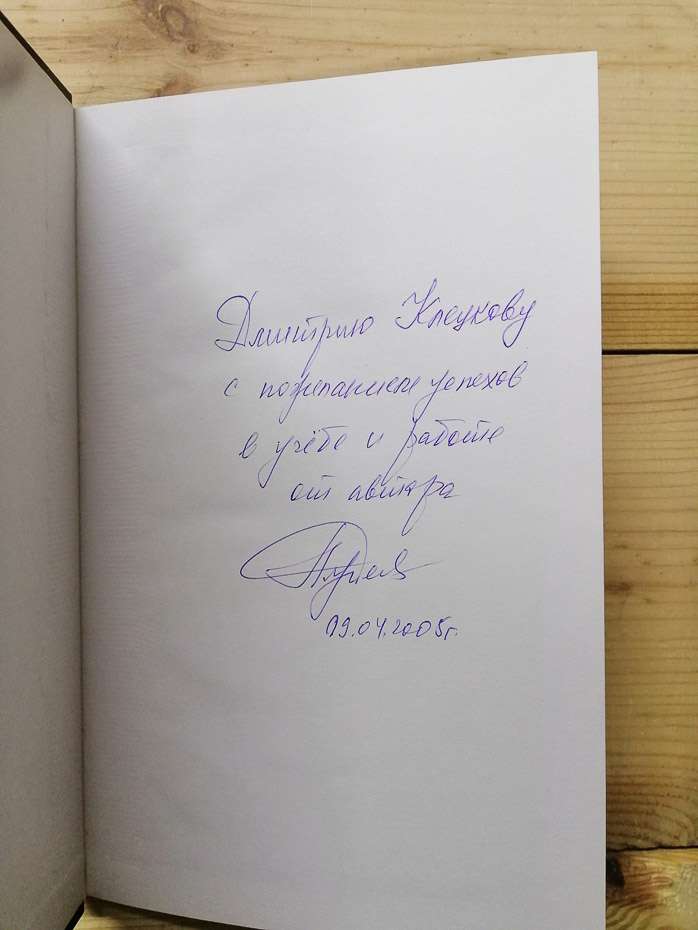 Дмитрию Клецкову
с пожеланием успехов
в учёбе и работе
от автора
09.04.2005г.